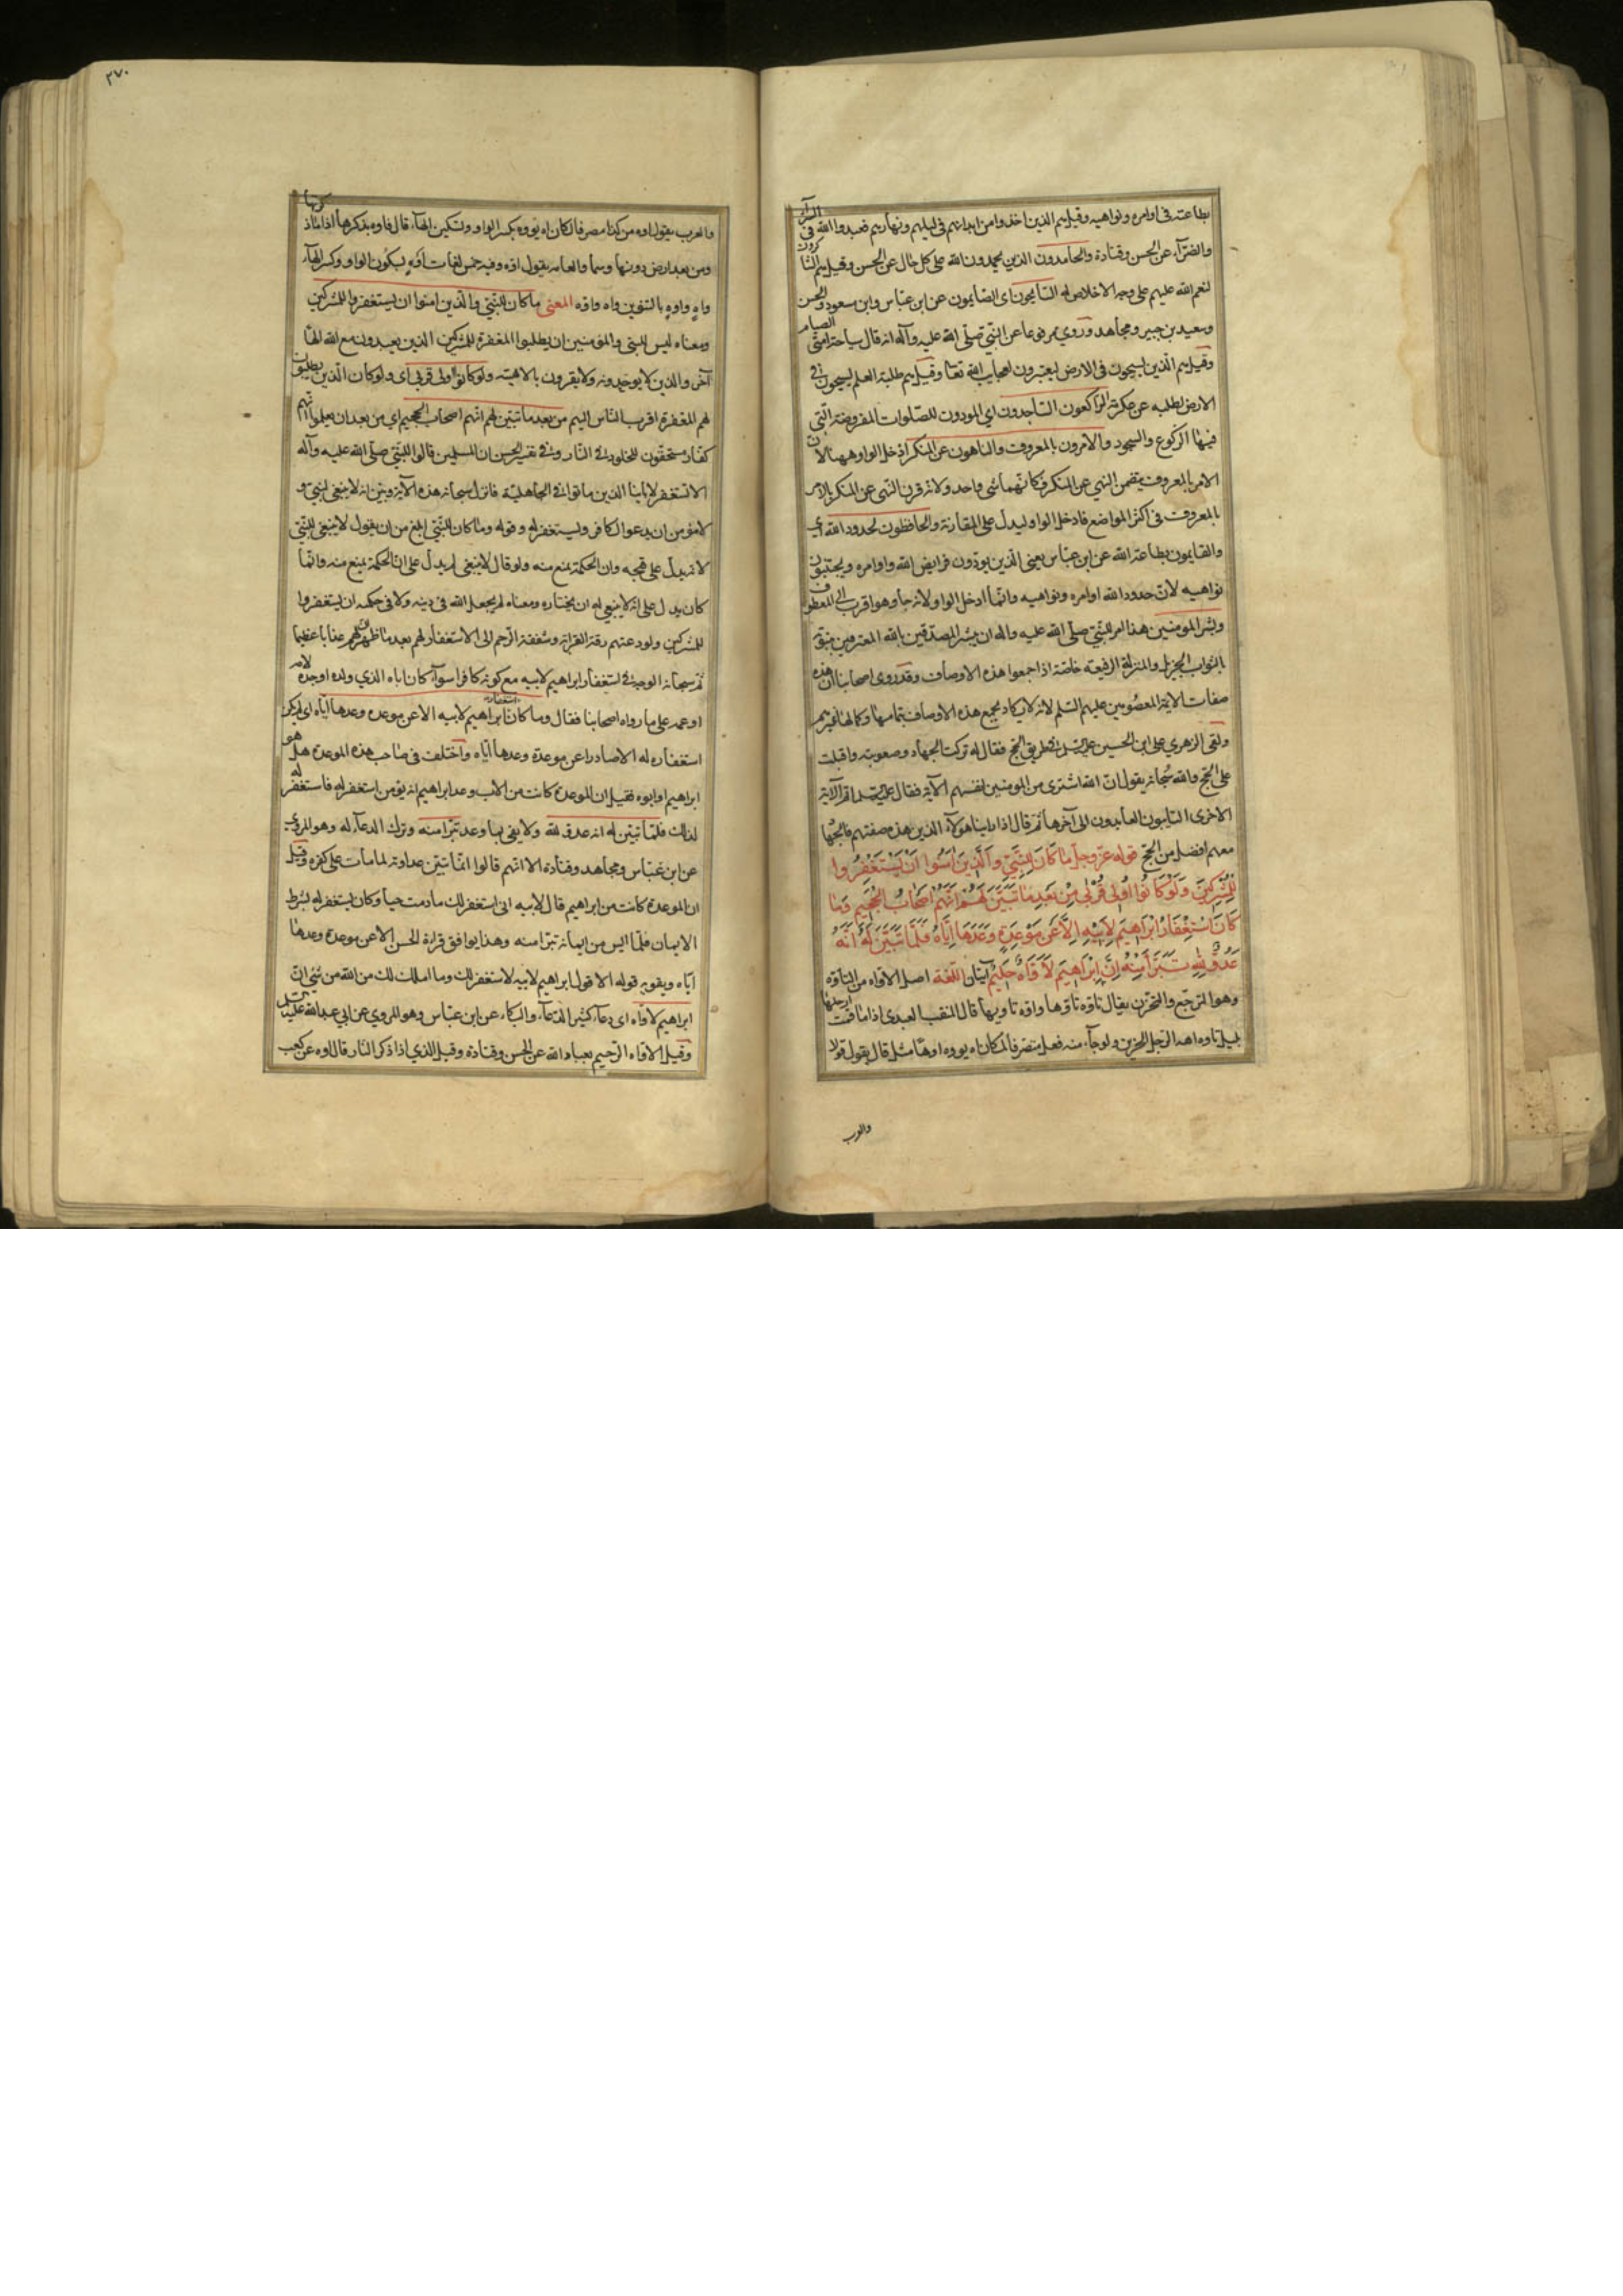 بطاعته فى اوامره ونواهيه وقيل هم الذين اخذوا من ابدانهم فى ليلهم ونهارهم فعبدوا الله فى السرآء
والضرآء عن الحسن وقتادة والحامدون الذين يحمدون الله على كل حال عن الحسن وقيل هم الشاكرون
لنعم الله عليهم على وجه الاخلاص له السايحون اى الصايمون عن ابن عباس وابن مسعود والحسن
وسعيد بن جبير ومجاهد وروي مرفوعا عن النبي صلى الله عليه وآله انه قال سياحة امتى الصيام
وقيل هم الذين يسيحون فى الارض ليعتبرون لعجايب الله تعا وقيل هم طلبة العلم يسيحون فى
الارض لطلبه عن عكرمة الراكعون الساجدون اي المودون للصلوات المفروضة التى
فيها الركوع والسجود والامرون بالمعروف والناهون عن المنكر ادخل الواو ههنا لان
الامر بالمعروف يتضمن النهي عن المنكر فكانهما شى واحد ولانه قرن النهى عن المنكر بالامر
بالمعروف فى اكثر المواضع فادخل الواو ليدل على المقارنة والحافظون لحدود الله اي
والقايمون بطاعة الله عن ابن عباس يعنى الذين يودون فرايض الله واوامره ويجتنبون
نواهيه لان حدود الله اوامره ونواهيه وانما ادخل الواو لانه جاء وهو اقرب الى المعطوف
وبشر المومنين هذا امر للنبي صلى الله عليه واله ان يبشر المصدقين بالله المعترفين بنبوته
بالثواب الجزيل والمنزلة الرفيعه خاصة اذا جمعوا هذه الاوصاف وقد روى اصحابنا ان هذه
صفات الايمة المعصومين عليهم السلم لانه لا يكاد يجمع هذه الاوصاف بتمامها وكمالها غيرهم
ولقى الزهري على ابن الحسين عليه السلم فى طريق الحج فقال له تركت الجهاد وصعوبته واقبلت
على الحج والله سبحانه يقول ان الله اشترى من المومنين انفسهم الآية فقال عليه السلم اقرا الآية
الاخرى التايبون العابدون الى آخرها ثم قال اذا راينا هولاء الذين هذه صفتهم فالجهاد
معهم افضل من الحج قوله عز وجل ما كَانَ لِلنَّبِيِّ وَالَّذِينَ امَنُوا اَنْ يَسْتَغْفِرُوا
لِلْمُشْرِكِينَ وَلَوْ كَانُوا اُولِى قُرْبٰى مِنْ بَعْدِ مَا تَبَيَّنَ لَهُمْ اَنَّهُمْ اَصْحَابُ الْجَحِيمِ وَمَا
كَانَ اسْتِغْفَارُ اِبْرَاهِيمَ لِاَبِيهِ اِلَّا عَنْ مَوْعِدَةٍ وَعَدَهَا اِيَّاهُ فَلَمَّا تَبَيَّنَ لَهُ اَنَّهُ
عَدُوٌّ لِلهِ تَبَرَّاَ مِنْهُ اِنَّ اِبْرَاهِيمَ لَاَوَّاهٌ حَلِيمٌ آيتان اللغة اصل الاواه من التاوه
وهو الترجع والتحزن يقال تاوه تاوها واوه تاويها قال المثقب العبدى اذا ما قمت ارحلها
بليل تاوه اهة الرجل الحزين ولو جاء منه فعل متصرف لكان آه يووه اوها مثل قال يقول قولا
والعرب
٢٧٠
والعرب يقول اوه من كذا مصرفا لكان اه يووه بكسر الواو وتسكين الهآء قال فاوه بذكرها اذا ما ذكرتها
ومن بعد ارض دونها وسماء والعامه يقول اوّه وفيه خمس لغات اوْهِ بسكون الواو وكسر الهآء
واهٍ واوهٍ بالتنوين واه واوه المعنى ما كان للنبي والذين امنوا ان يستغفروا للمشركين
ومعناه ليس للنبى والمؤمنين ان يطلبوا المغفرة للمشركين الذين يعبدون مع الله الها
آخر والذين لا يوحدونه ولا يقرون بالاهيته ولو كانوا اولى قربى اى ولو كان الذين يطلبون
لهم المغفرة اقرب الناس اليهم من بعد ما تبين لهم انهم اصحاب الجحيم اي من بعد ان يعلموا انهم
كفار مستحقون للخلود فى النار وفى تفسير الحسن ان المسلمين قالوا للنبي صلى الله عليه وآله
الا تستغفر لابائنا الذين ماتوا فى الجاهلية فانزل سبحانه هذه الآية وبين انه لا ينبغى لنبي و
لا مؤمن ان يدعوا لكافر ويستغفر له وقوله وما كان للنبي ابلغ من ان يقول لا ينبغى للنبي
لانه يدل على قبحه وان الحكمة تمنع منه ولو قال لا ينبغى لم يدل على ان الحكمة تمنع منه وانما
كان يدل على انه لا ينبغى له ان يختاره ومعناه لم يجعل الله فى دينه ولا فى حكمه ان يستغفروا
للمشركين ولو دعتهم رقة القرابة وشفقة الرحم الى الاستغفار لهم بعد ما ظهر لهم ان لهم عذابا عظيما
ثم بين سبحانه الوجه فى استغفار ابراهيم لابيه مع كونه كافرا سوآء كان اباه الذي ولده او جده لامه
او عمه على ما رواه اصحابنا فقال وما كان استغفار ابراهيم لابيه الا عن موعدة وعدها اياه اى لم يكن
استغفاره له الا صادرا عن موعدة وعدها اياه واختلف فى صاحب هذه الموعدة هل هو
ابراهيم او ابوه فقيل ان الموعدة كانت من الاب وعد ابراهيم انه يؤمن استغفر له فاستغفر له
لذلك فلما تبين له انه عدو لله ولا يفى بما وعد تبرا منه وترك الدعآء له وهو المروي
عن ابن عباس ومجاهد وقتادة الا انهم قالوا انما تبين عداوته لما مات على كفره وقيل
ان الموعدة كانت من ابراهيم قال لابيه انى استغفر لك ما دمت حيا وكان يستغفر له بشرط
الايمان فلما ايس من ايمانه تبرا منه وهذا يوافق قراءة الحسن الا عن موعدة وعدها
اياه ويقويه قوله الا قول ابراهيم لابيه لاستغفرن لك وما املك لك من الله من شئ ان
ابراهيم لاواه اى دعآء كثير الدعآء والبكاء عن ابن عباس وهو المروي عن ابي عبد الله عليه السلم
وقيل الاواه الرحيم بعباد الله عن الحسن وقتادة وقيل الذي اذا ذكر النار قال اوه عن كعب